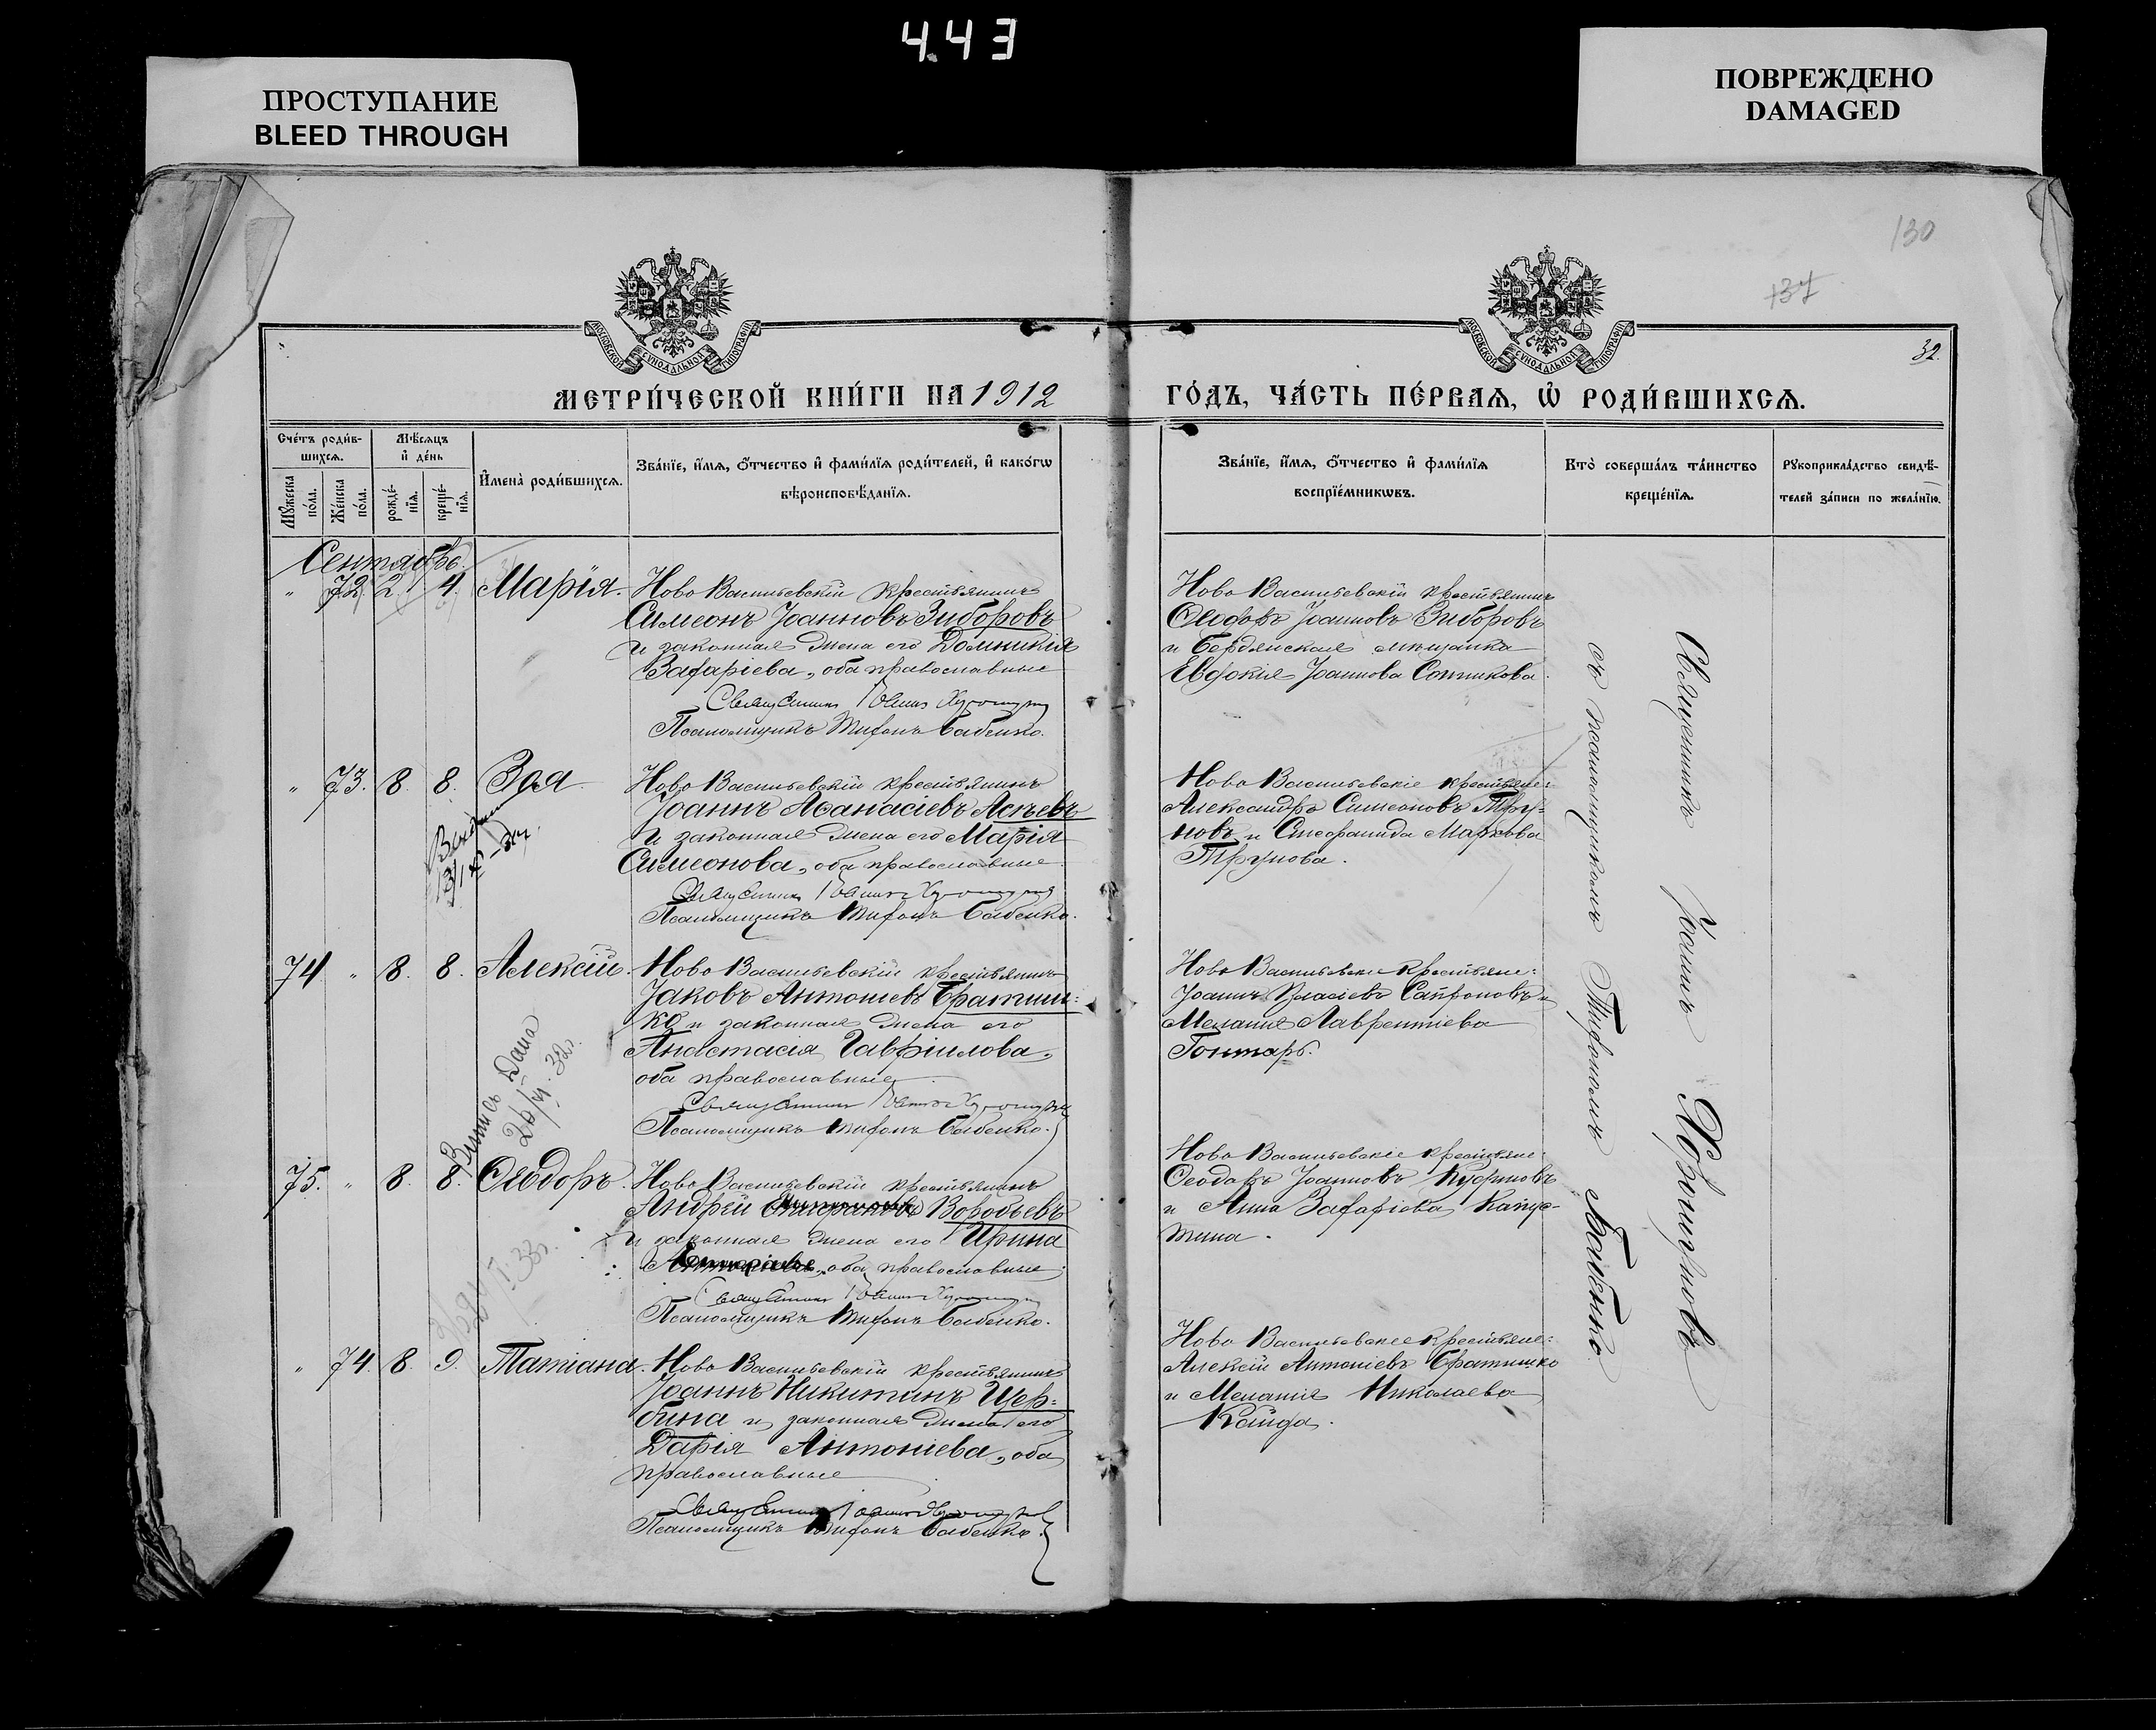 443
ПРОСТУПАНИЕ
BLEED THROUGH
ПОВРЕЖДЕНО
DAMAGED
130
32.
МОСКОВСКОЙ СѴНОДАЛЬНОЙ ТИПОГРАФІИ
МОСКОВСКОЙ СѴНОДАЛЬНОЙ ТИПОГРАФІИ
МЕТРИ́ЧЕСКОЙ КНИ́ГИ НА 1912
ГО́ДЪ, ЧА́СТЬ ПЕ́РВАѦ, Ѡ҆ РОДИ́ВШИХСѦ.
Сче́тъ роди́в-
шихсѧ.
Мѣ́сѧцъ
и҆ де́нь
Мꙋ́жеска по́ла.
Же́нска по́ла.
рожде́-нїѧ.
креще́-нїѧ.
И҆мена̀ роди́вшихсѧ.
Зва́нїе, и҆́мѧ, ѻ҆́тчество и҆ фами́лїѧ роди́телей, и҆ како́гѡ
вѣроисповѣ́данїѧ.
Зва́нїе, и҆́мѧ, ѻ҆́тчество и҆ фами́лїѧ
воспрїе́мникѡвъ.
Кто̀ соверша́лъ та́инство
креще́нїѧ.
Рꙋкоприкла́дство свидѣ́-
телей за́писи по жела́нїю.
Сентябрь.
" 72. 2. 4. Марія.
Ново Васильевскій крестьянинъ
Симеонъ Іоанновъ Зиборовъ
и законная жена его Домникія
Захаріева, оба православные
Священникъ Іоаннъ
Псаломщикъ Тифонъ Бабенко.
Ново Васильевскій крестьянинъ
Ѳеодоръ Іоанновъ Зиборовъ
и Бердянская мѣщанка
Евдокія Іоаннова Сотникова.
" 73. 8. 8. Зоя
Ново Васильевскій крестьянинъ
Іоаннъ Аѳанасіевъ Асѣевъ
и законная жена его Марія
Симеонова, оба православные.
Священникъ Іоаннъ
Псаломщикъ Тифонъ Бабенко.
Ново Васильевскіе крестьяне:
Александръ Симеоновъ Тру-
новъ и Стефанида Маркова
Трунова.
74 " 8. 8. Алексій.
Ново Васильевскій крестьянинъ
Іаковъ Антоніевъ Братиш-
ко и законная жена его
Анастасія Гавріилова,
оба православные.
Священникъ Іоаннъ
Псаломщикъ Тифонъ Бабенко.
Ново Васильевскіе крестьяне:
Іоаннъ Власіевъ и
Меланія Лаврентіева
Гонтарь.
Выпись Дана
75. " 8. 8. Ѳеодоръ.
Ново Васильевскій крестьянинъ
Андрей Воробьевъ
и законная жена его Ирина
оба православные.
Священникъ Іоаннъ
Псаломщикъ Тифонъ Бабенко.
Ново Васильевскіе крестьяне:
Ѳеодоръ Іоанновъ
и Анна Захаріева Капус-
тина.
" 74. 8. 9. Татіана.
Ново Васильевскій крестьянинъ
Іоаннъ Никитинъ Щер-
бина и законная жена его
Дарія Антоніева, оба
православные
Священникъ Іоаннъ
Псаломщикъ Тифонъ Бабенко.
Ново Васильевскіе крестьяне:
Алексій Антоніевъ Братишко
и Меланія Николаева
Кайда.
Священникъ Іоаннъ
съ псаломщикомъ Тифономъ Бабенко